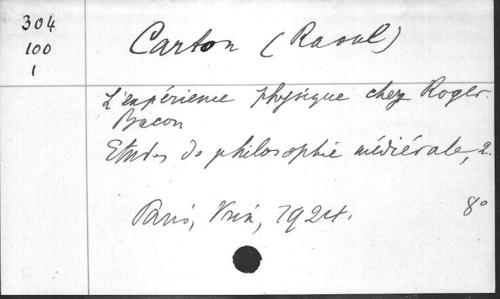 304
100
1
Carton (Raoul)
L'expérience physique chez Roger
Bacon
Etudes de philosophie médiévale, 2.
Paris, Vrin, 1924. 8°